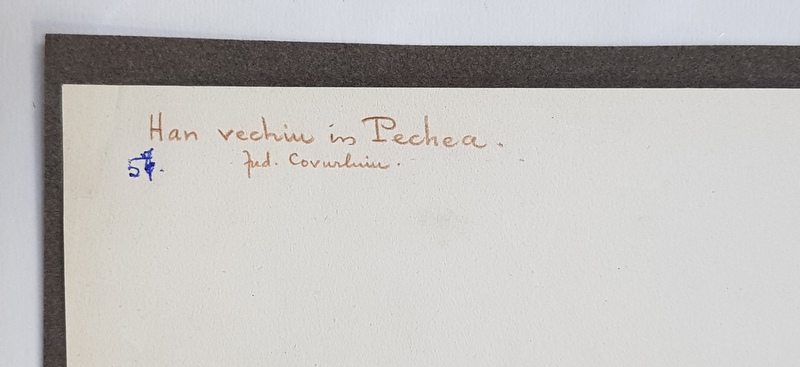 Han vechiu in Pechea.
Jud. Covurluiu.